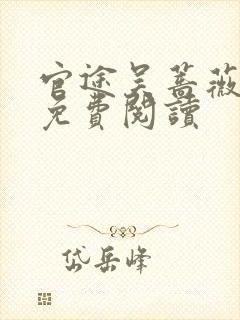 官途吴蔷薇
免費閱讀
岱岳峰